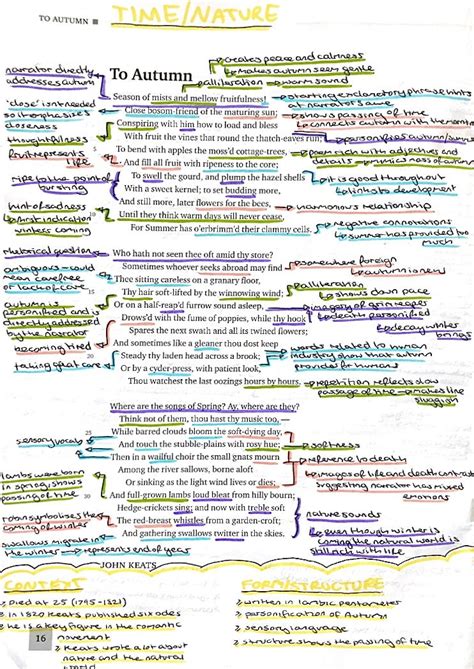 TO AUTUMN
TIME/NATURE
creates peace and calmness
makes autumn seem gentle
narrator directly
addresses autumn
To Autumn
alliteration → warm sound
Season of mists and mellow fruitfulness!
starting exclamatory phrase hints
at narrator's awe
'close' isn't needed
so it emphasizes
closeness
Close bosom-friend of the maturing sun;
shows passing of time
Conspiring with him how to load and bless
thoughtfulness
With fruit the vines that round the thatch-eaves run;
personifies autumn
fruit represents
life
To bend with apples the moss'd cottage-trees,
poem rich with adjectives and
details
And fill all fruit with ripeness to the core;
ripe to the point of
bursting
To swell the gourd, and plump the hazel shells
it is good throughout
With a sweet kernel; to set budding more,
development
And still more, later flowers for the bees,
harmonious relationship
hint of sadness
first indication
winter's coming
10
Until they think warm days will never cease,
negative connotations
For Summer has o'erbrimm'd their clammy cells.
summer has provided too
much
rhetorical question
Who hath not seen thee oft amid thy store?
somewhere foreign
ambiguous - could
mean carefree
or lack of care
Sometimes whoever seeks abroad may find
Thee sitting careless on a granary floor,
alliteration
15
Thy hair soft-lifted by the winnowing wind;
shows down pace
autumn is
personified and is
directly addressed
by the narrator
Or on a half-reap'd furrow sound asleep,
imagery of grim reaper
Drows'd with the fume of poppies, while thy hook
death personified
Spares the next swath and all its twined flowers;
decay winter
brings
becoming tired
And sometimes like a gleaner thou dost keep
words related to human
20
Steady thy laden head across a brook;
industry show that autumn
provides for humans
taking great care
Or by a cyder-press, with patient look,
Thou watchest the last oozings hours by hours.
repetition reflects slow
passage of time - makes line
sluggish
Where are the songs of Spring? Ay, where are they?
Think not of them, thou hast thy music too,—
25
While barred clouds bloom the soft-dying day,
sensory vocab
And touch the stubble-plains with rosy hue;
softness
Then in a wailful choir the small gnats mourn
reference to death
Among the river sallows, borne aloft
images of life and death contrast
lambs were born
in spring, shows
passing of time
Or sinking as the light wind lives or dies;
suggesting narrator has mixed
emotions
30
And full-grown lambs loud bleat from hilly bourn;
Hedge-crickets sing; and now with treble soft
nature sounds
robin symbolises the
coming of winter
The red-breast whistles from a garden-croft;
even though winter is
And gathering swallows twitter in the skies.
coming the natural world is
still rich with life
swallows migrate in
the winter → represents end of year
JOHN KEATS
CONTEXT
FORM/STRUCTURE
died at 25 (1795-1821)
written in iambic pentameter
in 1820 Keats published six odes
personification of Autumn
he is a key figure in the romantic
movement
sensory language
Keats wrote a lot about
nature and the natural
world
structure shows the passing of time
16